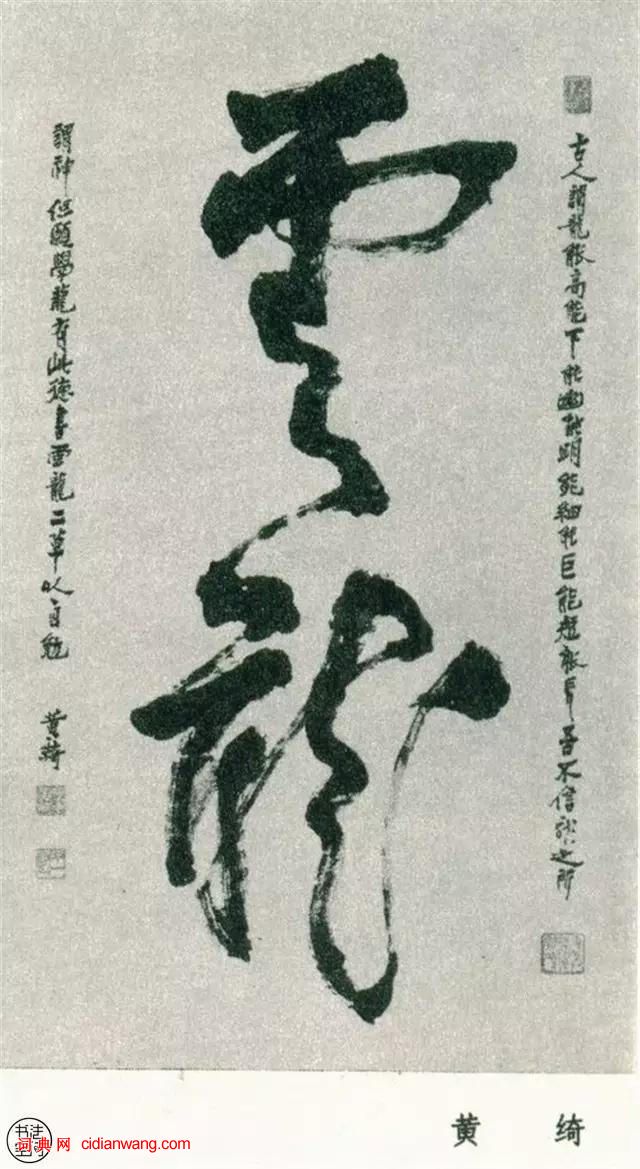 古人謂龍能高能下能幽能明能細能巨能短能長吾不信龍之所
雲龍
謂神但願學龍有此德書雲龍二草以自勉
黄綺
黄绮
书法
词典网 cidianwang.com